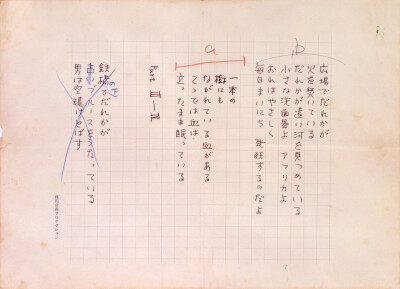 b
広場でだれかが
火を焚いている
だれかが遠い河を見つめている
小さな洗面器よ アフリカよ
おれはやさしく
毎日まいにち 発狂するのだよ
a
一本の
樹にも
ながれている血がある
そこでは血は
立ったまま眠っている
鉄橋でだれかが
古いブルースをうたっている
男は空罐けとばす